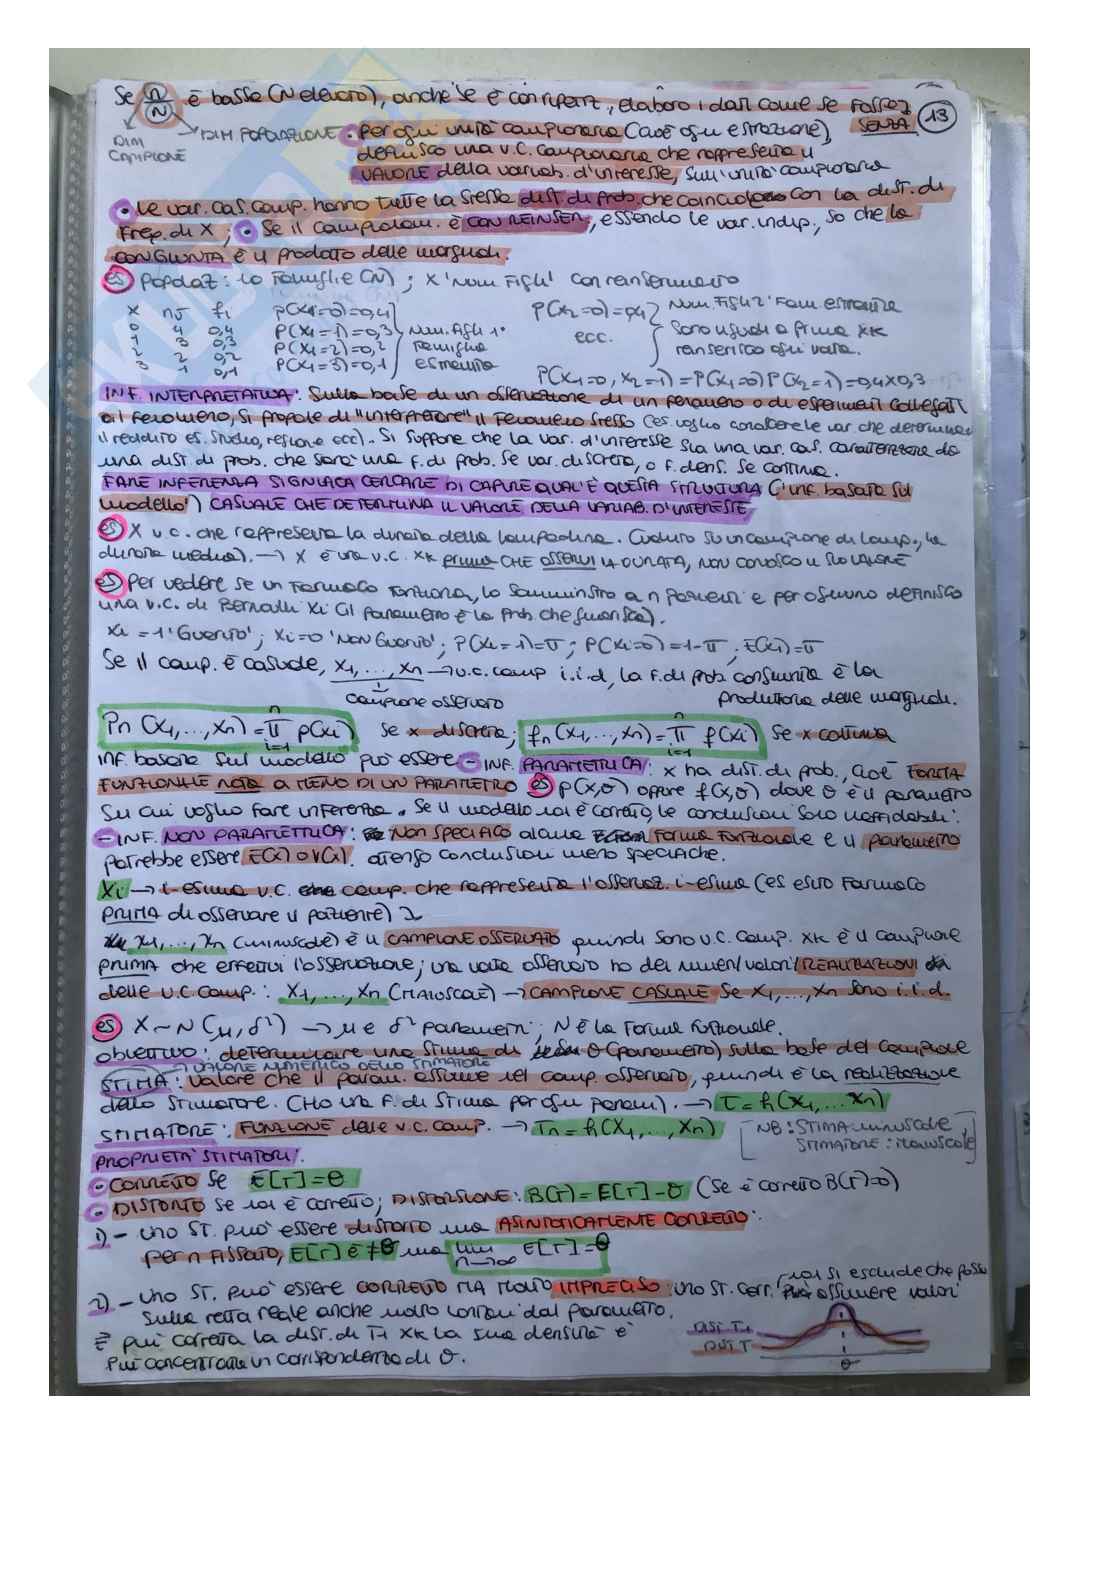 Se n/N è bassa (N elevato), anche se è con ripetiz., elaboro i dati come se fosse SENZA
13
DIM CAMPIONE
DIM POPOLAZIONE
• Per ogni unità campionaria (cioè ogni estrazione),
definisco una v.c. campionaria che rappresenta il
VALORE della variab. d'interesse, sull'unità campionaria
• Le var. cas. camp. hanno tutte la stessa dist. di prob. che coincide con la dist. di
freq. di X; • Se il campionam. è CON REINSER, essendo le var. indip., so che la
CONGIUNTA è il prodotto delle marginali.
es Popolaz: 10 famiglie (N); X 'Num Figli' con reinserimento
X nj fi
0 4 0,4
1 3 0,3
2 2 0,2
3 1 0,1
P(X1=0)=0,4
P(X1=1)=0,3
P(X1=2)=0,2
P(X1=3)=0,1
Num. Figli 1°
famiglia
estratta
P(X2=0)=0,4
ecc.
Num. Figli 2° fam estratta
sono uguali a prima xk
reinserisco ogni volta.
P(X1=0, X2=1)=P(X1=0)P(X2=1)=0,4x0,3
INF. INTERPRETATIVA: Sulla base di un osservazione di un fenomeno o di esperimenti collegati
al fenomeno, si propone di "interpretare" il fenomeno stesso (es voglio considerare le var che determinano
il reddito es. studio, regione ecc). Si suppone che la var. d'interesse sia una var. cas. caratterizzata da
una dist. di prob. che sarà una f. di prob. se var. discreta, o f. dens. se continua.
FARE INFERENZA SIGNIFICA CERCARE DI CAPIRE QUAL'È QUESTA STRUTTURA (l'inf. basata sul
modello) CASUALE CHE DETERMINA IL VALORE DELLA VARIAB. D'INTERESSE
es X v.c. che rappresenta la durata della lampadina. (Valuto su un campione di lamp., la
durata media). → X è una v.c. xk prima CHE OSSERVI LA DURATA, NON CONOSCO IL SUO VALORE
es Per vedere se un farmaco funziona, lo somministro a n pazienti e per ognuno definisco
una v.c. di Bernoulli Xi (il parametro è la prob. che guarisca).
Xi = 1 'Guarito'; Xi=0 'Non Guarito'; P(Xi=1)=π; P(Xi=0)=1-π; E(Xi)=π
Se il camp. è casuale, x1,...,xn → v.c. camp i.i.d, la f. di prob congiunta è la
campione osservato
produttoria delle marginali.
Pn (x1,...,xn) = n Π i=1 p(xi) Se x discreta; fn (x1,...,xn) = n Π i=1 f(xi) Se x continua
INF. basata sul modello può essere - INF. PARAMETRICA: X ha dist. di prob., cioè FORMA
FUNZIONALE NOTA A MENO DI UN PARAMETRO es p(x,θ) oppure f(x,θ) dove θ è il parametro
su cui voglio fare inferenza. Se il modello non è corretto, le conclusioni sono inaffidabili.
- INF. NON PARAMETRICA: NON SPECIFICO alcuna forma funzionale e il parametro
potrebbe essere E(x) o V(x). ottengo conclusioni meno specifiche.
Xi → i-esima v.c. camp. che rappresenta l'osservaz. i-esima (es esito farmaco
PRIMA di osservare il paziente)
x1,...,xn (minuscole) è il CAMPIONE OSSERVATO quindi sono v.c. camp. xk è il campione
PRIMA che effettui l'osservazione; una volta osservato ho dei numeri/valori/REALIZZAZIONI
delle v.c camp.: X1,...,Xn (MAIUSCOLE) → CAMPIONE CASUALE Se X1,...,Xn sono i.i.d.
es X~N(μ,σ²) → μ e σ² parametri; N è la forma funzionale.
obiettivo: determinare una stima di θ (parametro) sulla base del campione
→ VALORE NUMERICO DELLO STIMATORE
STIMA: valore che il param. assume nel camp. osservato, quindi è la realizzazione
dello stimatore. (Ho una f. di stima per ogni param). → t = h(x1,...xn)
STIMATORE: FUNZIONE delle v.c. camp. → Tn = h(X1,...,Xn)
[NB: STIMA minuscole,
STIMATORE: maiuscole]
PROPRIETÀ STIMATORI:
• CORRETTO se E[T]=θ
• DISTORTO se non è corretto; DISTORSIONE: B(T)=E[T]-θ (Se è corretto B(T)=0)
1) - Uno ST. può essere distorto ma ASINTOTICAMENTE CORRETTO:
per n fissato, E[T] è ≠θ ma lim n→∞ E[T]=θ
2) - Uno ST. può essere CORRETTO MA MOLTO IMPRECISO: uno ST. corr. non si esclude che possa assumere valori
sulla retta reale anche molto lontani dal parametro.
È più corretta la dist. di T1 xk la sua densità è
più concentrata in corrispondenza di θ.
DIST T1
DIST T
θ